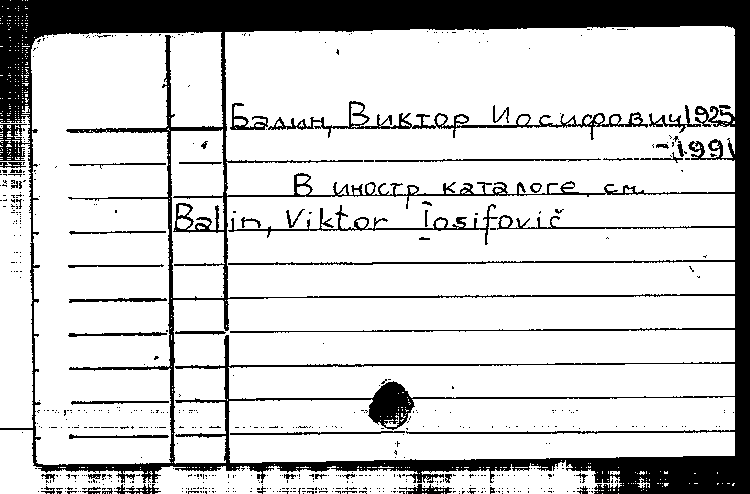 Балин, Виктор Иосифович, 1925
-1991
В иностр. каталоге см.
Balin, Viktor Iosifovič